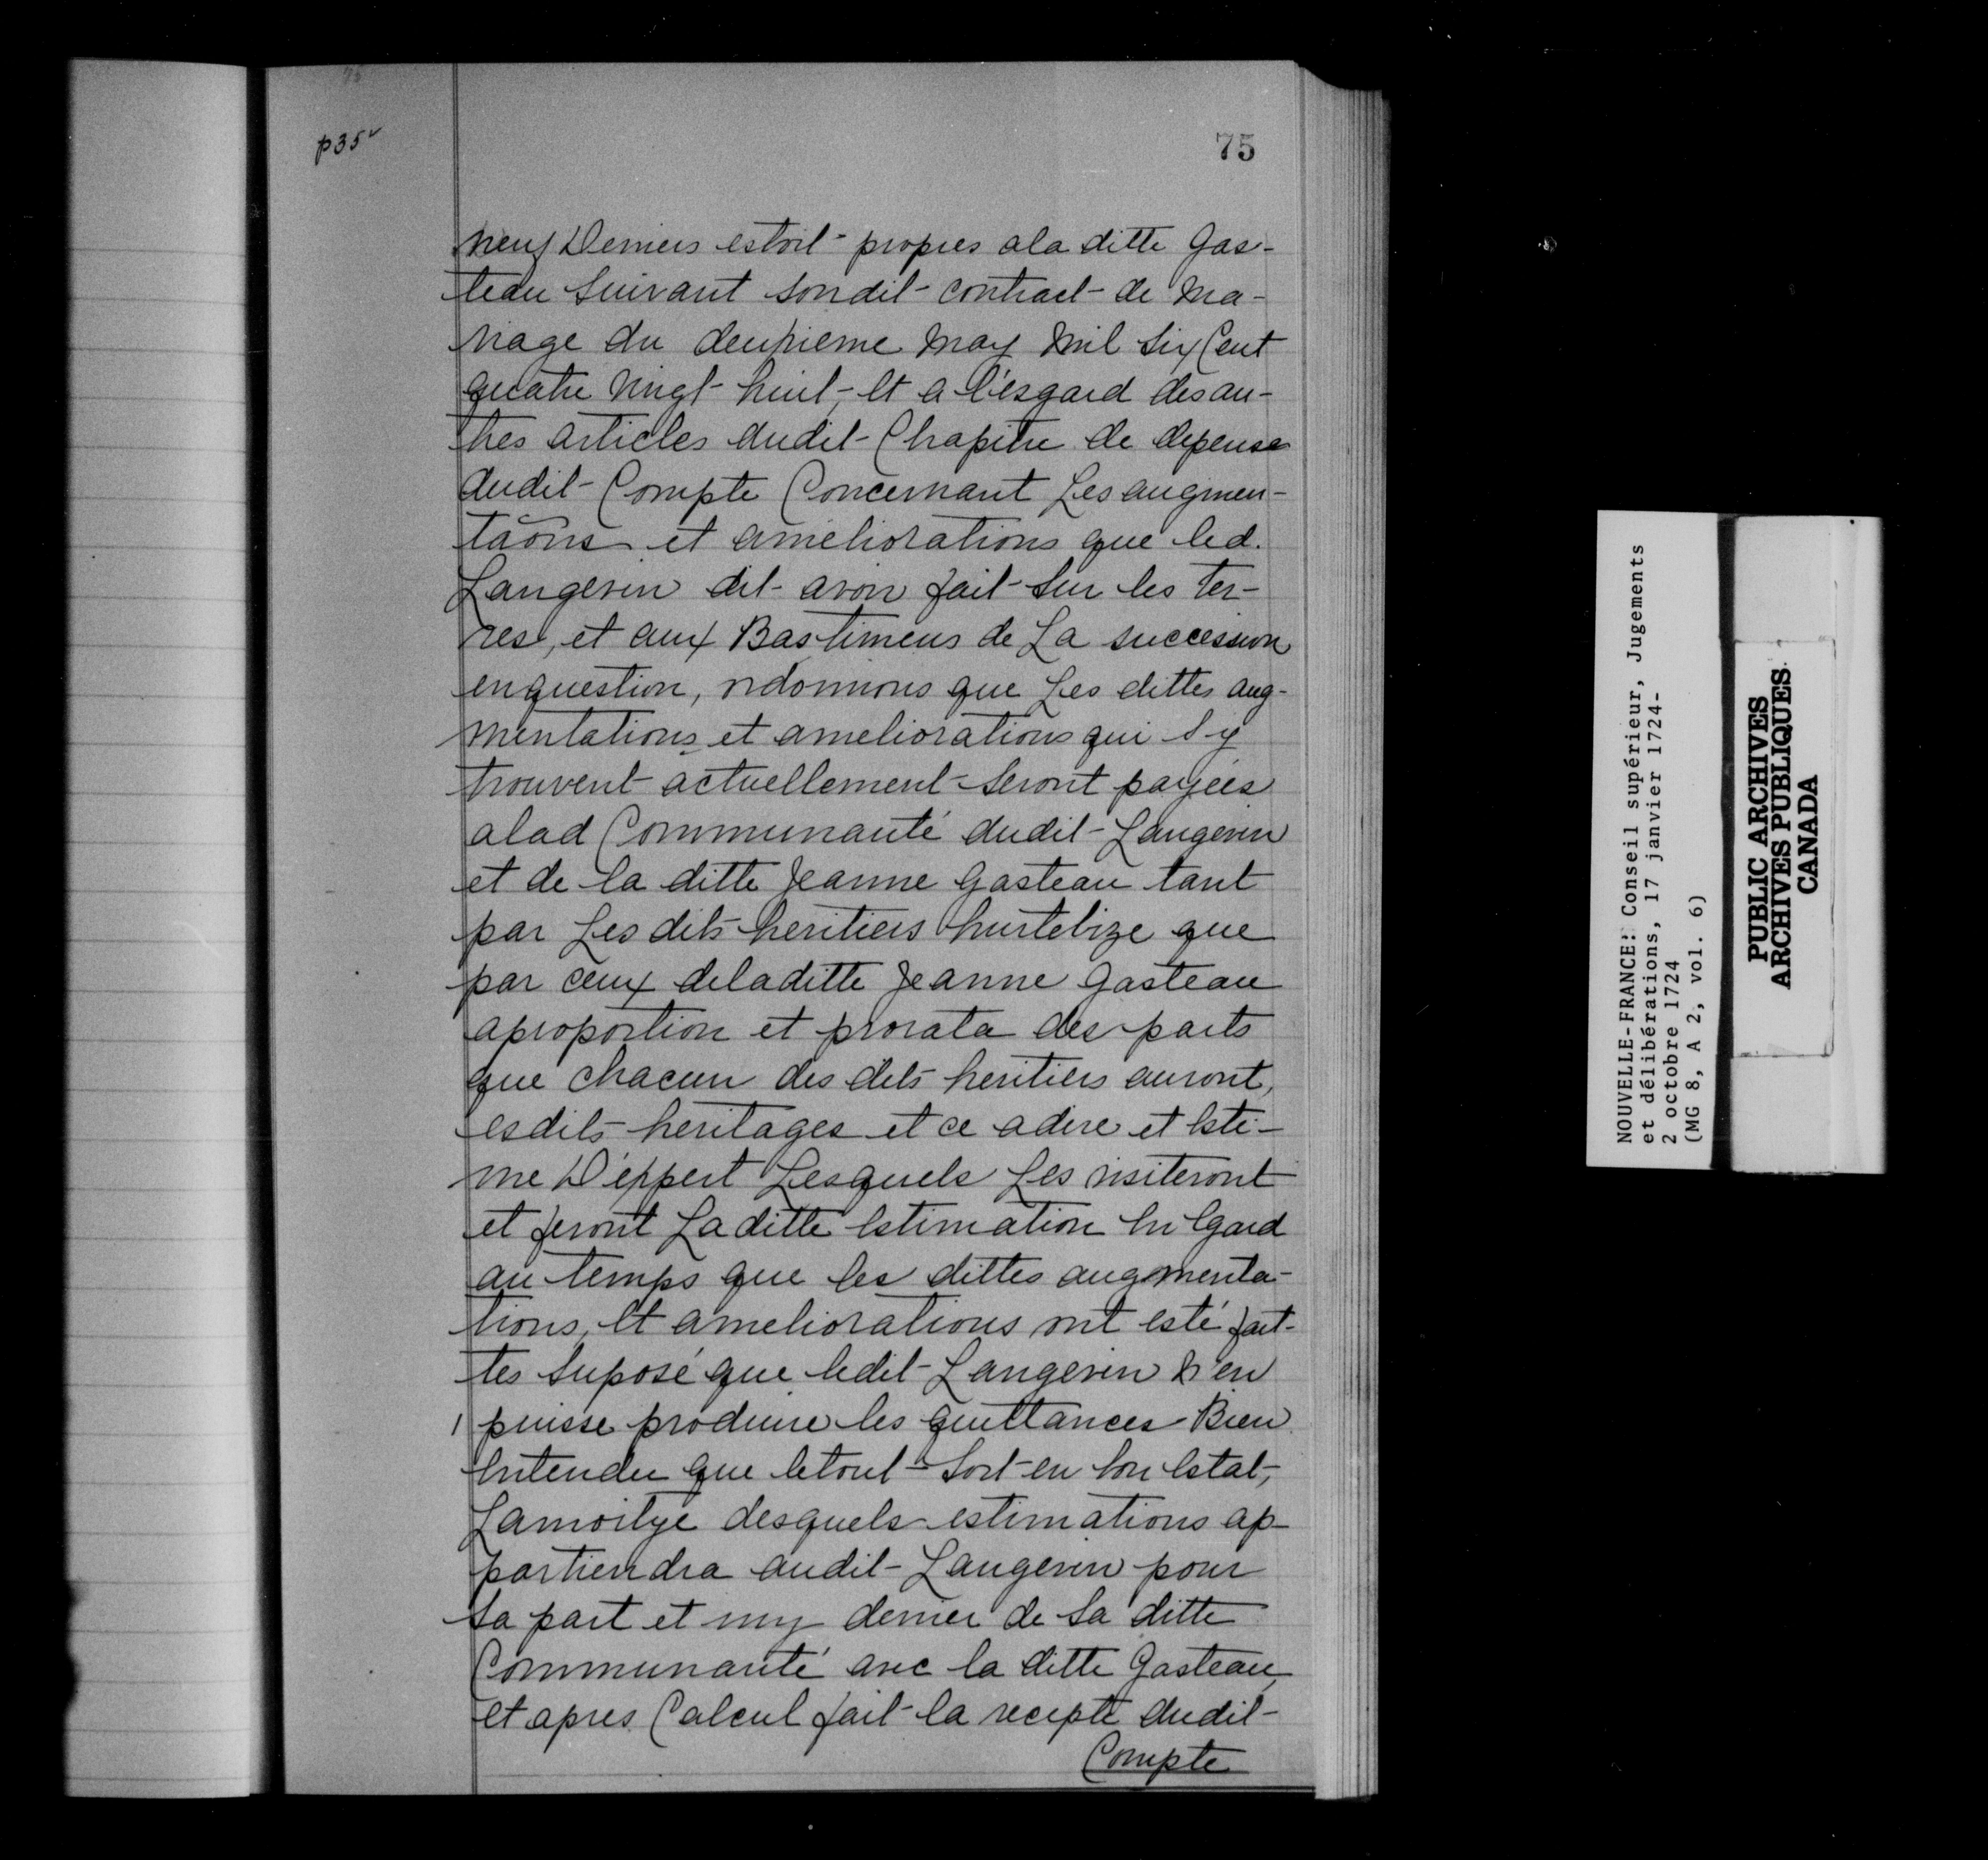 p35v
75
neuf Deniers estoit propres ala ditte Gas-
teau Suivant sondit contract de Ma-
riage du deuxieme May Mil Six Cent
quatre vingt huit, Et a l'esgard des au-
tres articles dudit Chapitre de depense
dudit Compte Concernant Les augmen-
taons et ameliorations que led.
Langevin dit avoir fait sur les ter-
res, et aux Bastimens de La succession
enquestion, ordonnons que Les dittes aug-
mentations et ameliorations qui s'y
trouvent actuellement seront payées
alad Communauté dudit Langevin
et de la ditte Jeanne Gasteau tant
par Les dits heritiers hurtebize que
par ceux deladitte Jeanne Gasteau
aproportion et prorata des parts
que chacun des dits heritiers auront,
esdits heritages et ce adire et Esti-
me D'expert Lesquels Les visiteront
et feront Laditte Estimation Eu Egard
au temps que les dittes augmenta-
tions, Et ameliorations ont esté fait-
tes Suposé que ledit Langevin n'en
puisse produire les quittances Bien
Entendu que letout soit en bon Estat,
Lamoitye desquels estimations ap-
partiendra audit Langevin pour
sa part et my denier de sa ditte
Communauté avec la ditte Gasteau,
et apres Calcul fait la recepte dudit
Compte
NOUVELLE-FRANCE: Conseil supérieur, Jugements
et délibérations, 17 janvier 1724-
2 octobre 1724
(MG 8, A 2, vol. 6)
PUBLIC ARCHIVES
ARCHIVES PUBLIQUES
CANADA